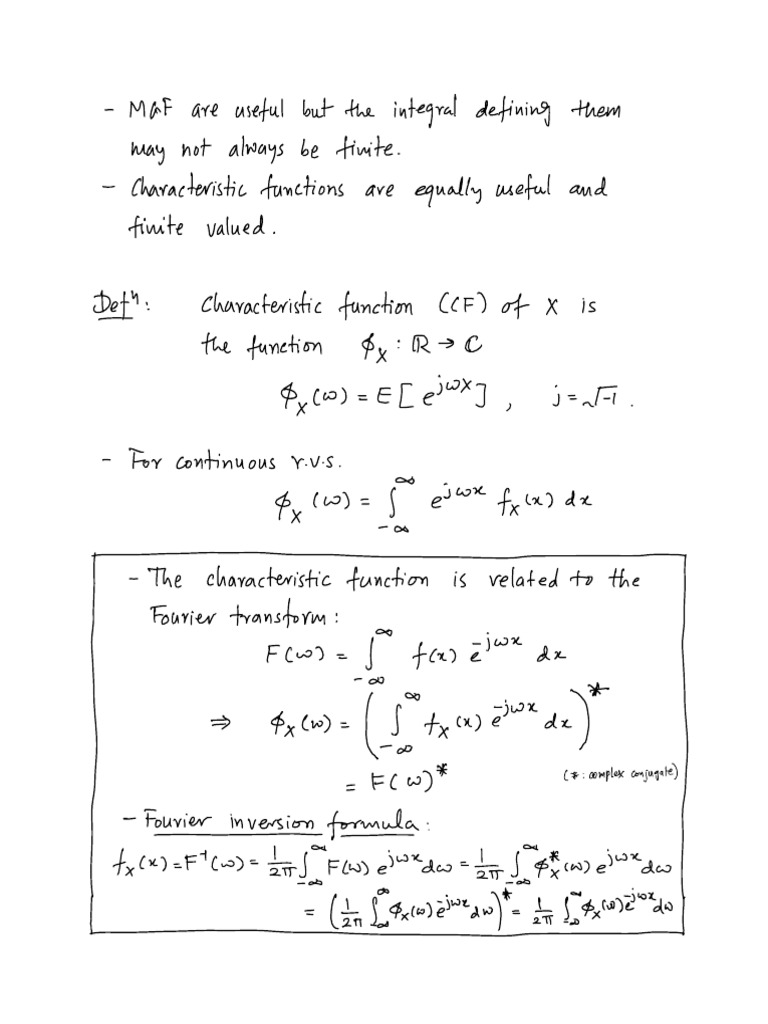 - MGF are useful but the integral defining them
may not always be finite.
- Characteristic functions are equally useful and
finite valued.
Defⁿ: Characteristic function (CF) of X is
the function ϕ_X : ℝ → ℂ
ϕ_X(ω) = E[e^{jωX}], j = √-1.
- For continuous r.v.s.
ϕ_X(ω) = ∫_{-∞}^{∞} e^{jωx} f_X(x) dx
- The characteristic function is related to the
Fourier transform:
F(ω) = ∫_{-∞}^{∞} f(x) e^{-jωx} dx
⇒ ϕ_X(ω) = (∫_{-∞}^{∞} f_X(x) e^{-jωx} dx)^*
= F(ω)^* (*: complex conjugate)
- Fourier inversion formula:
f_X(x) = F^{-1}(ω) = 1/2π ∫_{-∞}^{∞} F(ω) e^{jωx} dω = 1/2π ∫_{-∞}^{∞} ϕ_X^*(ω) e^{jωx} dω
= (1/2π ∫_{-∞}^{∞} ϕ_X(ω) e^{-jωx} dω)^* = 1/2π ∫_{-∞}^{∞} ϕ_X(ω) e^{-jωx} dω